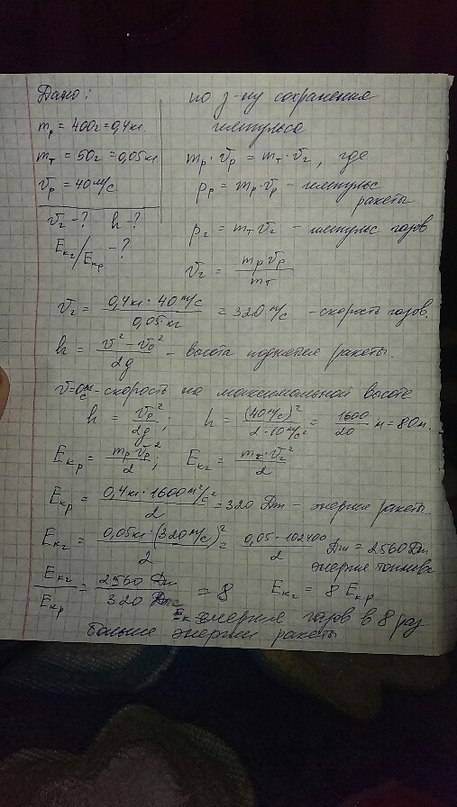 Дано:
mр = 400г = 0,4кг.
mт = 50г = 0,05кг
vр = 40 м/с
vг - ? h - ?
Eкг/Eкр - ?
по з-ну сохранения
импульса
mр · vр = mт · vг, где
pр = mр · vр - импульс
ракеты
pг = mт vг - импульс газов
vг = mр vр / mт
vг = 0,4кг · 40 м/с / 0,05 кг = 320 м/с - скорость газов.
h = v² - v₀² / 2g - высота поднятия ракеты.
v = 0 м/с - скорость на максимальной высоте
h = vр² / 2g; h = (40 м/с)² / 2 · 10 м/с² = 1600 / 20 м = 80м.
Eкр = mр vр² / 2; Eкг = mт · vг² / 2
Eкр = 0,4кг · 1600 м²/с² / 2 = 320 Дж - энергия ракеты
Eкг = 0,05кг · (320 м/с)² / 2 = 0,05 · 102400 / 2 Дж = 2560 Дж
энергия топлива
Eкг / Eкр = 2560 Дж / 320 Дж = 8 Eкг = 8 Eкр
Eк энергия газов в 8 раз
больше энергии ракеты